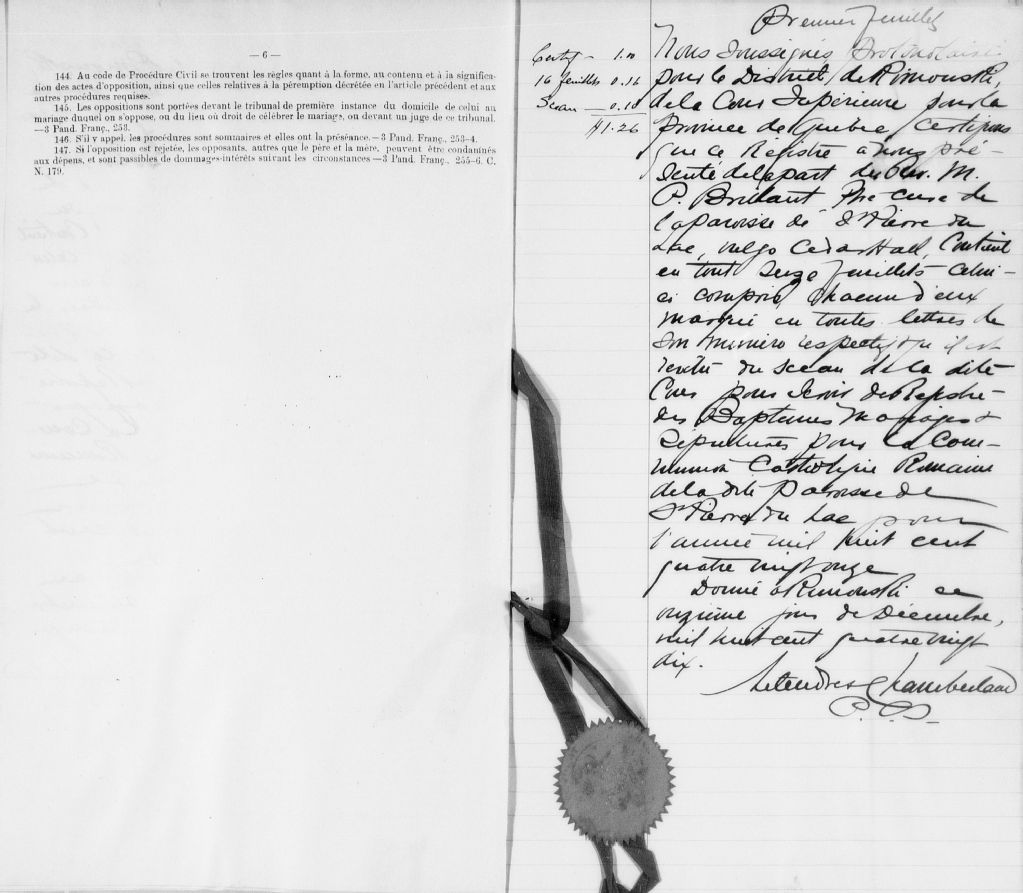 — 6 —
144. Au code de Procédure Civil se trouvent les règles quant à la forme, au contenu et à la significa-
tion des actes d'opposition, ainsi que celles relatives à la péremption décrétée en l'article précédent et aux
autres procédures requises.
145. Les oppositions sont portées devant le tribunal de première instance du domicile de celui au
mariage duquel on s'oppose, ou du lieu où droit de célébrer le mariage, ou devant un juge de ce tribunal.
—3 Pand. Franç., 253.
146. S'il y appel, les procédures sont sommaires et elles ont la préséance.—3 Pand. Franç., 253-4.
147. Si l'opposition est rejetée, les opposants, autres que le père et la mère, peuvent être condamnés
aux dépens, et sont passibles de dommages-intérêts suivant les circonstances—3 Pand. Franç., 255-6. C.
N. 179.
Certif — 1.00
16 feuillets 0.16
Sceau — 0.10
$1.26
Premier feuillet
Nous soussignés Protonotaire
pour le District de Rimouski,
de la Cour Supérieure pour la
Province de Quebec, certifions
que ce Registre à nous pré-
senté de la part du Rév. M.
P. Brillant Ptre curé de
la paroisse de St Pierre du
Lac, vulgo Cedar Hall, Contient
en tout Seize feuillets celui-
ci compris, chacun d'eux
marqué en toutes lettres de
son numéro respectif & qu'il est
revêtu du sceau de la dite
Cour pour servir de Registre
des Baptêmes Mariages &
Sépultures pour la Com-
munion Catholique Romaine
de la dite Paroisse de
St Pierre du Lac pour
l'année mil huit cent
quatre vingt onze
Donné à Rimouski ce
onzième jour de Décembre,
mil huit cent quatre vingt
dix.
Letendre & Chamberland
P. C. S.